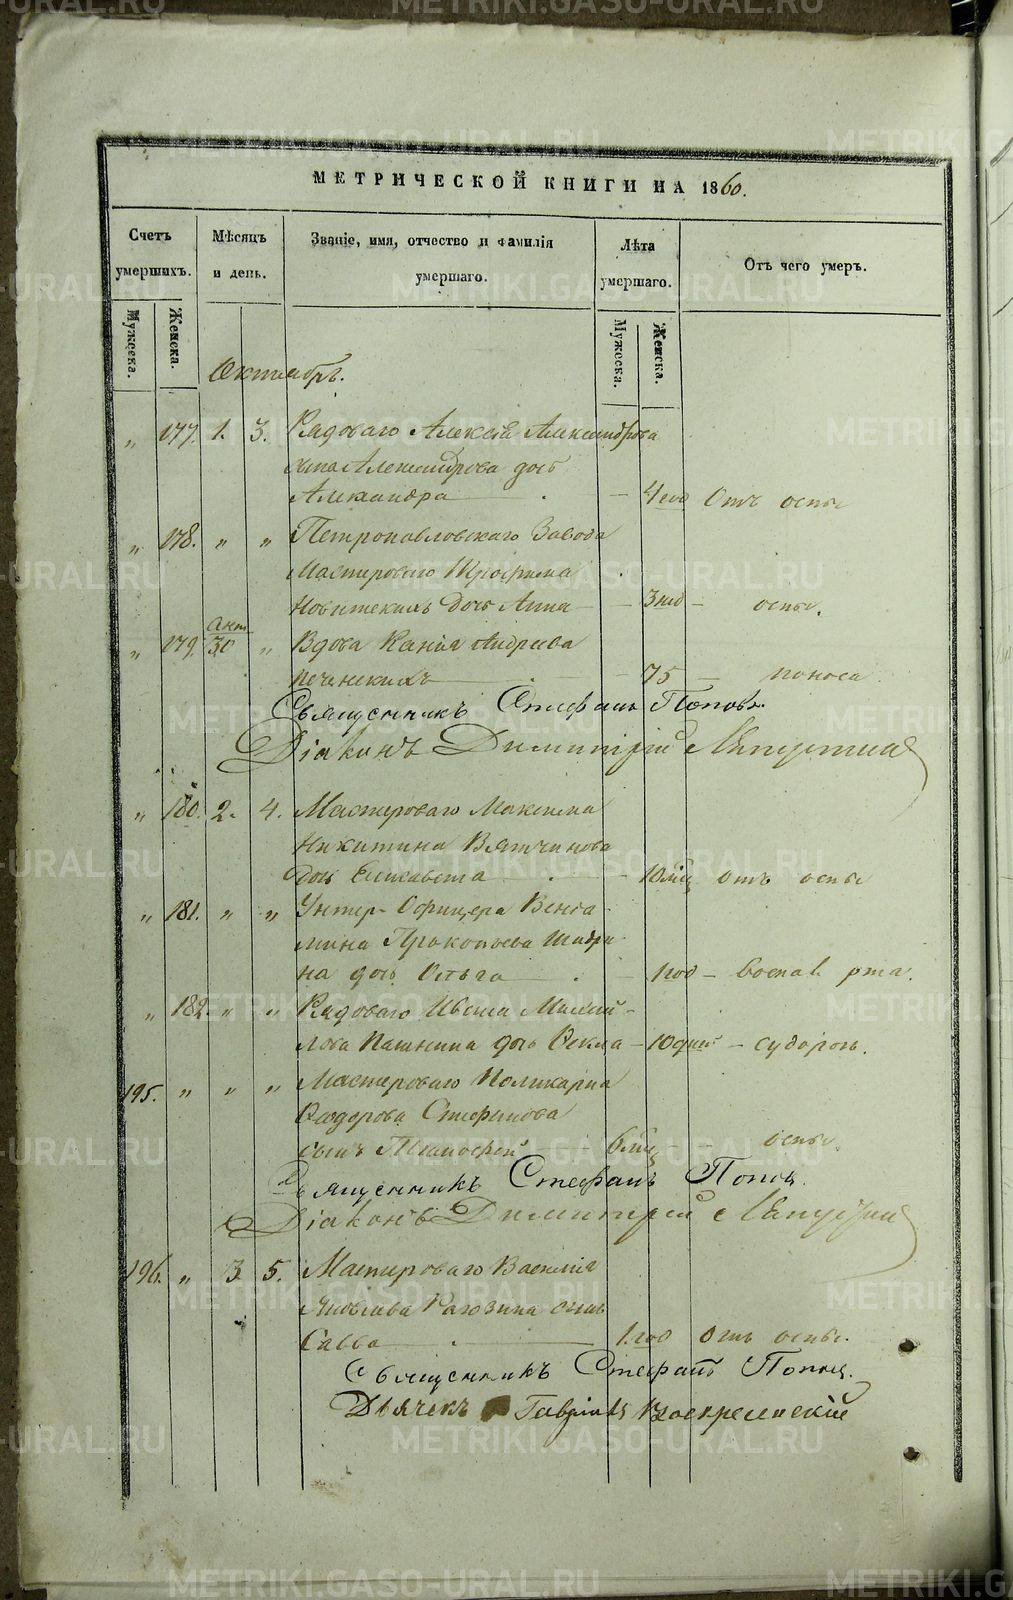 МЕТРИЧЕСКОЙ КНИГИ НА 1860.
Счетъ умершихъ.
Мужеска.
Женска.
Мѣсяцъ и день.
Званіе, имя, отчество и фамилія умершаго.
Лѣта умершаго.
Мужеска.
Женска.
Отъ чего умеръ.
Октябрь.
„ 177. 1. 3. Рядоваго Алексѣя Александрова
Александрова дочь
Александра — 4 Отъ оспы
„ 178. „ „ Петропавловскаго Завода
Мастероваго Трофима
дочь Анна — 3 нед — оспы.
„ 179. 30 „ Вдова Андреева
— 75 — поноса
Священникъ Стефанъ Поповъ.
Діаконъ Димитрій Ляпустинъ
„ 180. 2. 4. Мастероваго Максима
Никитина Вятчинова
дочь Елисавета — 10 мѣс Отъ оспы
„ 181. „ „ Унтер-Офицера Вениа-
мина Прокопьева Шабри-
на дочь Ольга — 1 год — воспал рта.
„ 182. „ „ Рядоваго Ивана Михай-
лова Пашнина дочь Фекла — 10 дней — судорогъ.
195. „ „ „ Мастероваго Поликарпа
Ѳедорова Стефанова
сынъ Тимофей 6 мѣс — оспы.
Священникъ Стефанъ Поповъ.
Діаконъ Димитрій Ляпустинъ
196. „ 3 5. Мастероваго Василія
Яковлева Рагозина сынъ
Савва — 1 год Отъ оспы.
Священникъ Стефанъ Поповъ.
Дьячекъ Гавріилъ Воскресенскій
METRIKI.GASO-URAL.RU